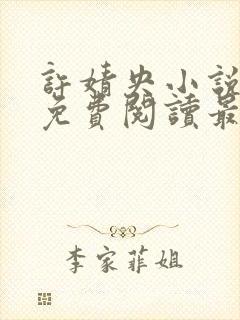 許婧央小說
免費閱讀最
李家菲姐